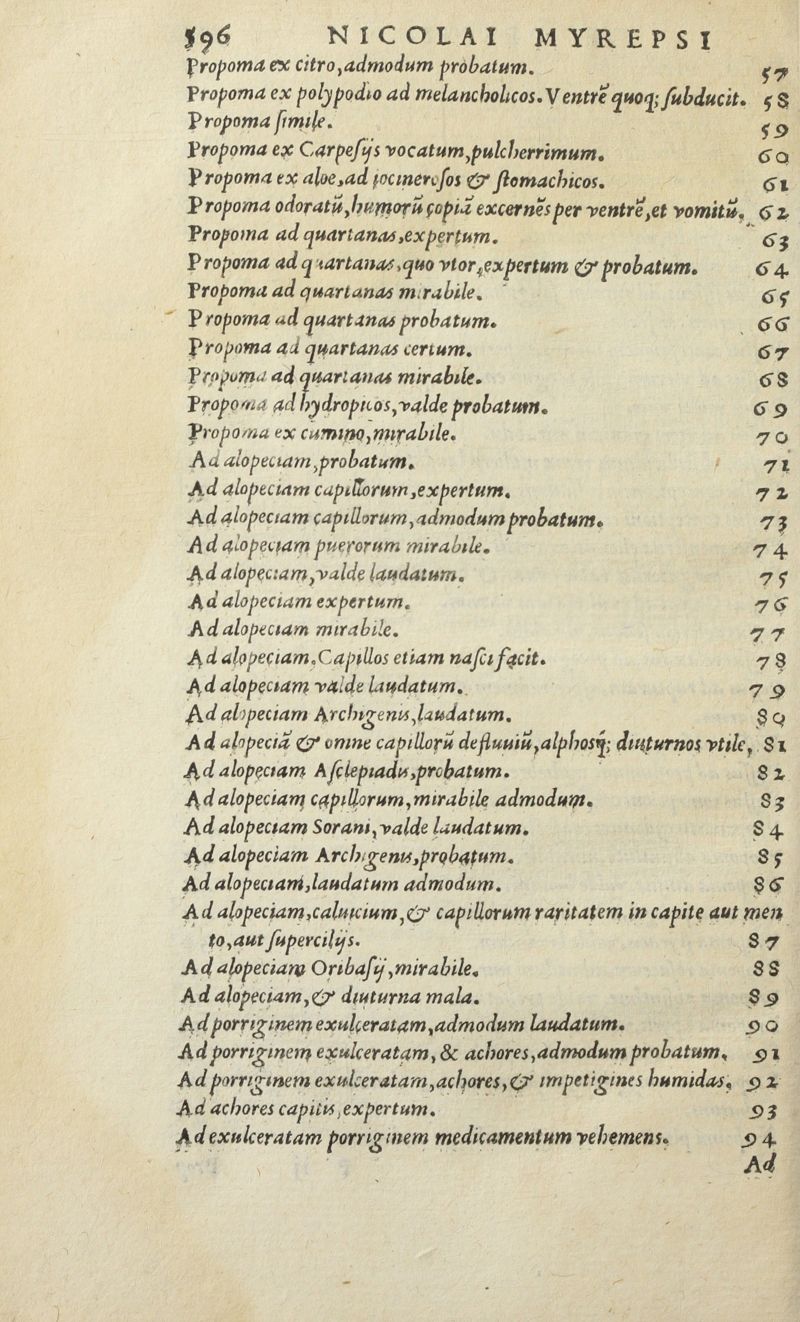 596 NICOLAI MYREPSI
Propoma ex citro, admodum probatum. 57
Propoma ex polypodio ad melancholicos. Ventrẽ quoq; ſubducit. 58
Propoma ſimile. 59
Propoma ex Carpeſijs vocatum, pulcherrimum. 60
Propoma ex aloe, ad iocineroſos & ſtomachicos. 61
Propoma odoratũ, humorũ copiã excernẽs per ventrẽ, et vomitũ. 62
Propoma ad quartanas, expertum. 63
Propoma ad quartanas, quo vtor, expertum & probatum. 64
Propoma ad quartanas mirabile. 65
Propoma ad quartanas probatum. 66
Propoma ad quartanas certum. 67
Propoma ad quartanas mirabile. 68
Propoma ad hydropicos, valde probatum. 69
Propoma ex cumino, mirabile. 70
Ad alopeciam, probatum. 71
Ad alopeciam capillorum, expertum. 72
Ad alopeciam capillorum, admodum probatum. 73
Ad alopeciam puerorum mirabile. 74
Ad alopeciam, valde laudatum. 75
Ad alopeciam expertum. 76
Ad alopeciam mirabile. 77
Ad alopeciam. Capillos etiam naſci facit. 78
Ad alopeciam valde laudatum. 79
Ad alopeciam Archigenis, laudatum. 80
Ad alopeciã & omne capillorũ defluuiũ, alphosq; diuturnos vtile. 81
Ad alopeciam Aſclepiadis, probatum. 82
Ad alopeciam capillorum, mirabile admodum. 83
Ad alopeciam Sorani, valde laudatum. 84
Ad alopeciam Archigenis, probatum. 85
Ad alopeciam, laudatum admodum. 86
Ad alopeciam, caluicium, & capillorum raritatem in capite aut men
to, aut ſupercilijs. 87
Ad alopeciam Oribaſij, mirabile. 88
Ad alopeciam, & diuturna mala. 89
Ad porriginem exulceratam, admodum laudatum. 90
Ad porriginem exulceratam, & achores, admodum probatum. 91
Ad porriginem exulceratam, achores, & impetigines humidas. 92
Ad achores capitis, expertum. 93
Ad exulceratam porriginem medicamentum vehemens. 94
Ad